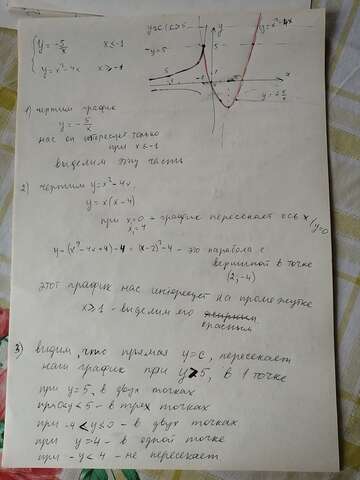 y = -5/x   x ≤ -1
y = x² - 4x   x ≥ -1
y = c (c > 5
y = x² - 4x
y = 5
5
y
x
1) чертим график
y = -5/x
нас он интересует только
при x ≤ -1
выделим эту часть
2) чертим y = x² - 4x,
y = x(x - 4)
при x₁ = 0 x₂ = 4 - график пересекает ось x (y=0
y = (x² - 4x + 4) - 4 = (x - 2)² - 4 - это парабола с
вершиной в точке
(2; -4)
этот график нас интересует на промежутке
x ≥ -1 - выделим его
красным
3) видим, что прямая y = c, пересекает
наш график при y > 5, в 1 точке
при y = 5, в двух точках
при 0 < y < 5 - в трёх точках
при -4 < y ≤ 0 - в двух точках
при y = 4 - в одной точке
при -y < 4 - не пересекает